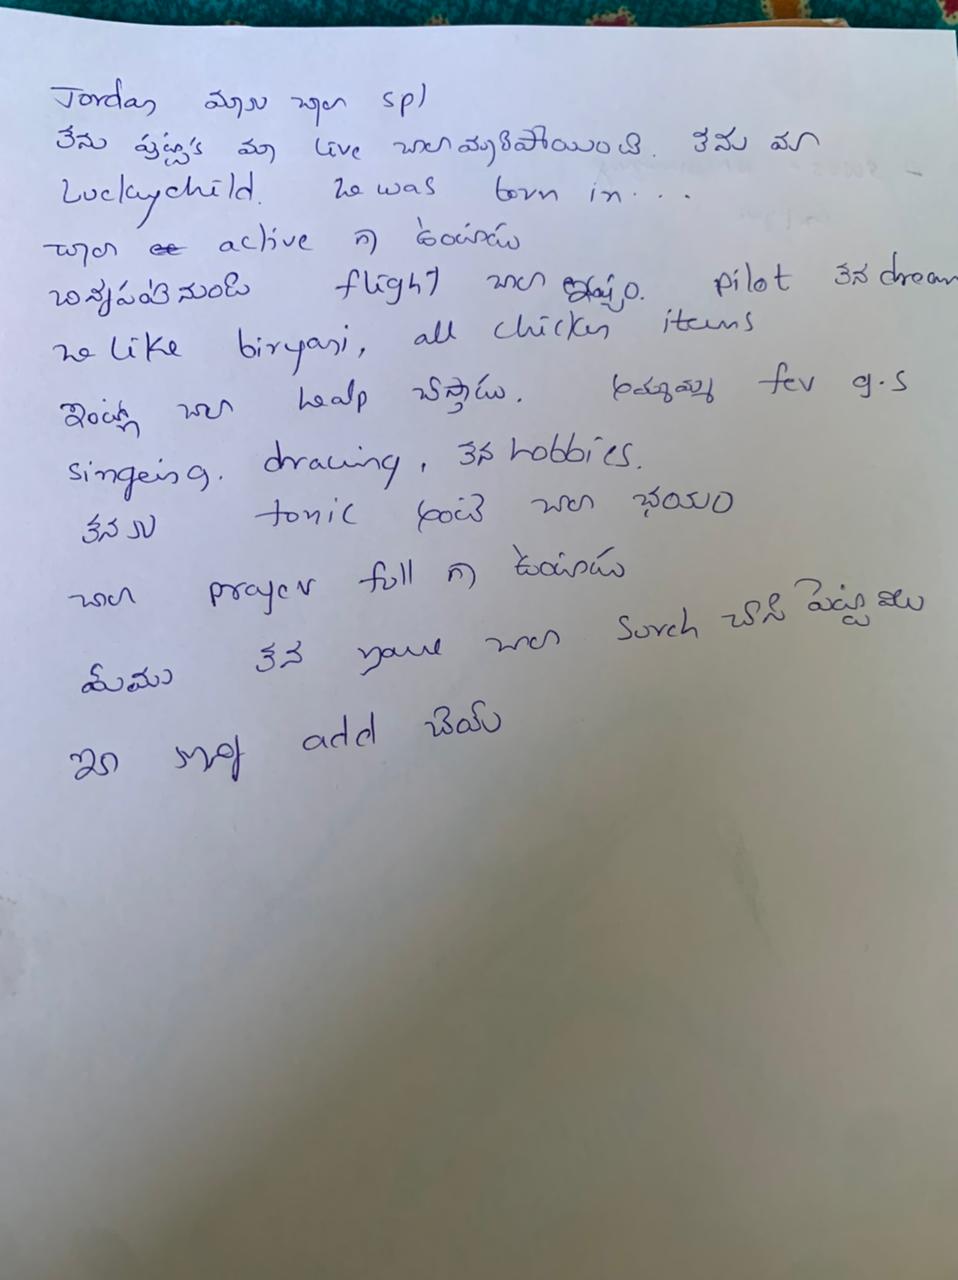 Jordan మాకు చాలా spl
తను పుట్టాక మా live చాలా మారిపోయింది. తను మా
Luckychild. he was born in...
చాలా active గా ఉంటాడు
చిన్నప్పటి నుండి flight చాలా ఇష్టం. pilot తన dream
he like biryani, all chicken items
ఇంట్లో చాలా healp చేస్తాడు. అమ్మమ్మ fev g.s
singeing. drawing, తన hobbies.
తనకు tonic అంటే చాలా భయం
చాలా prayer full గా ఉంటాడు
మేము తన name చాలా Surch చేసి పెట్టాము
ఇవి కూడా add చేయి